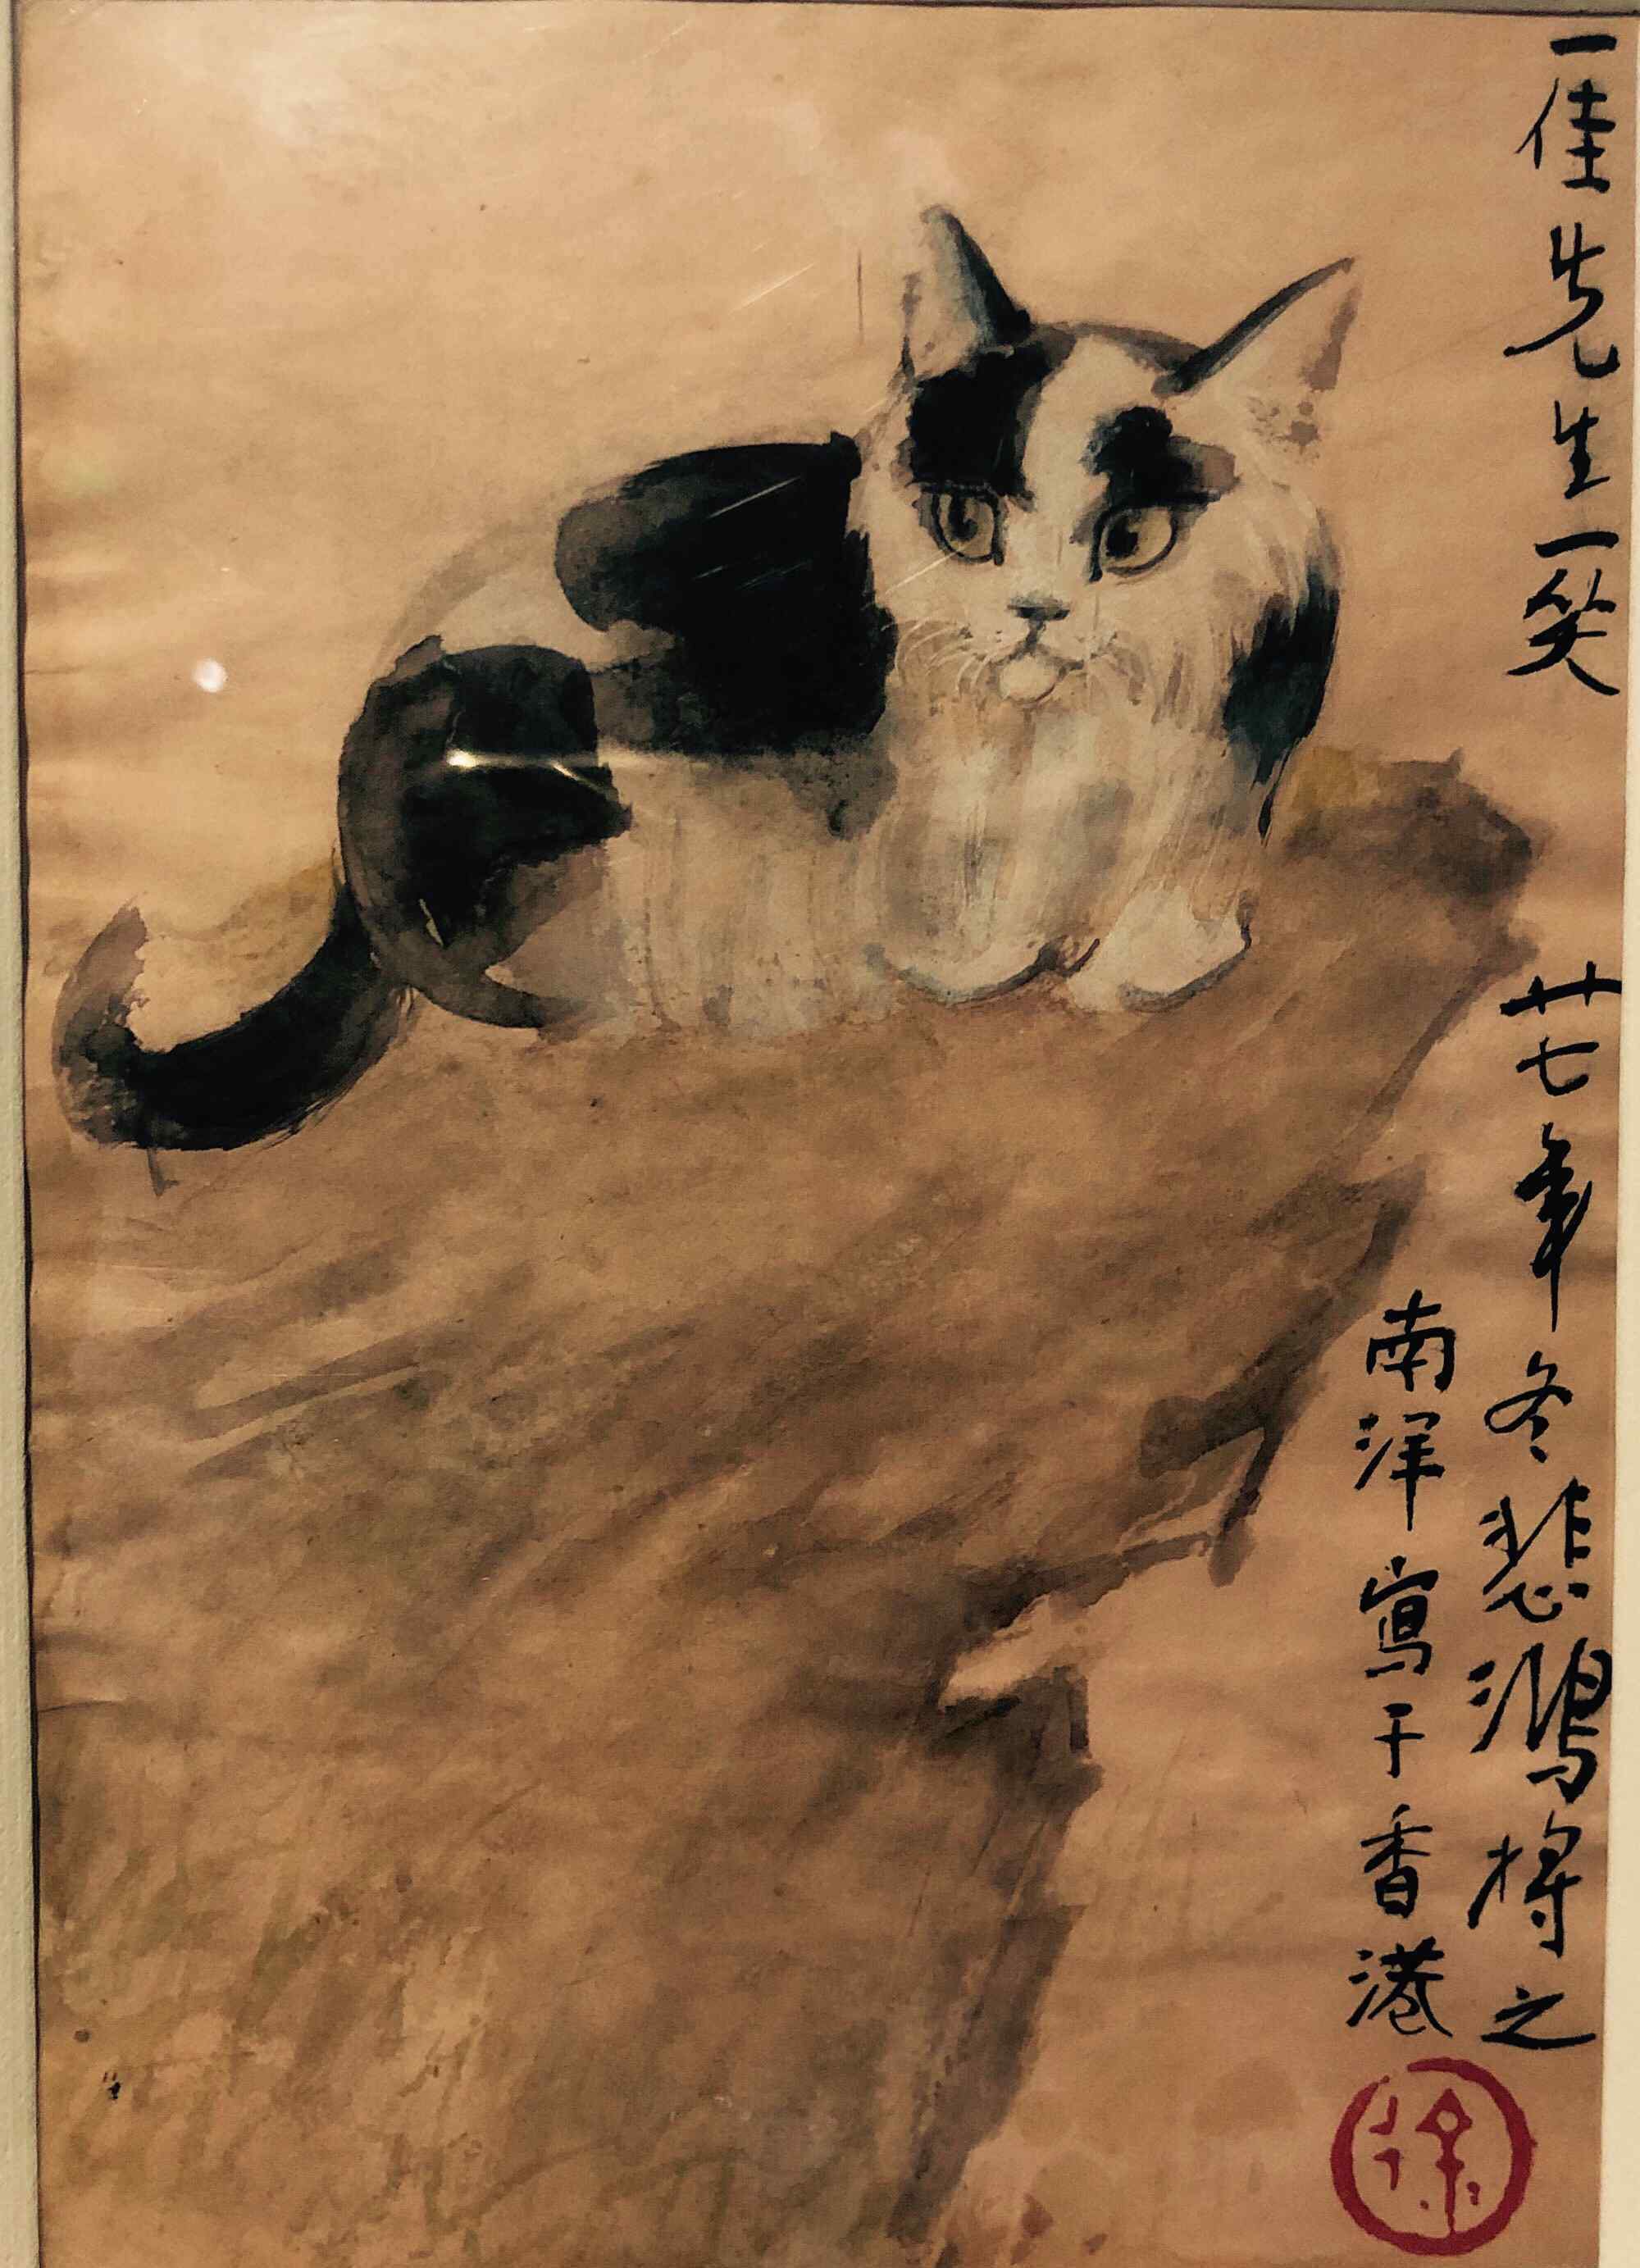 一佳先生一笑
廿七年冬悲鴻将之
南洋寫于香港
徐